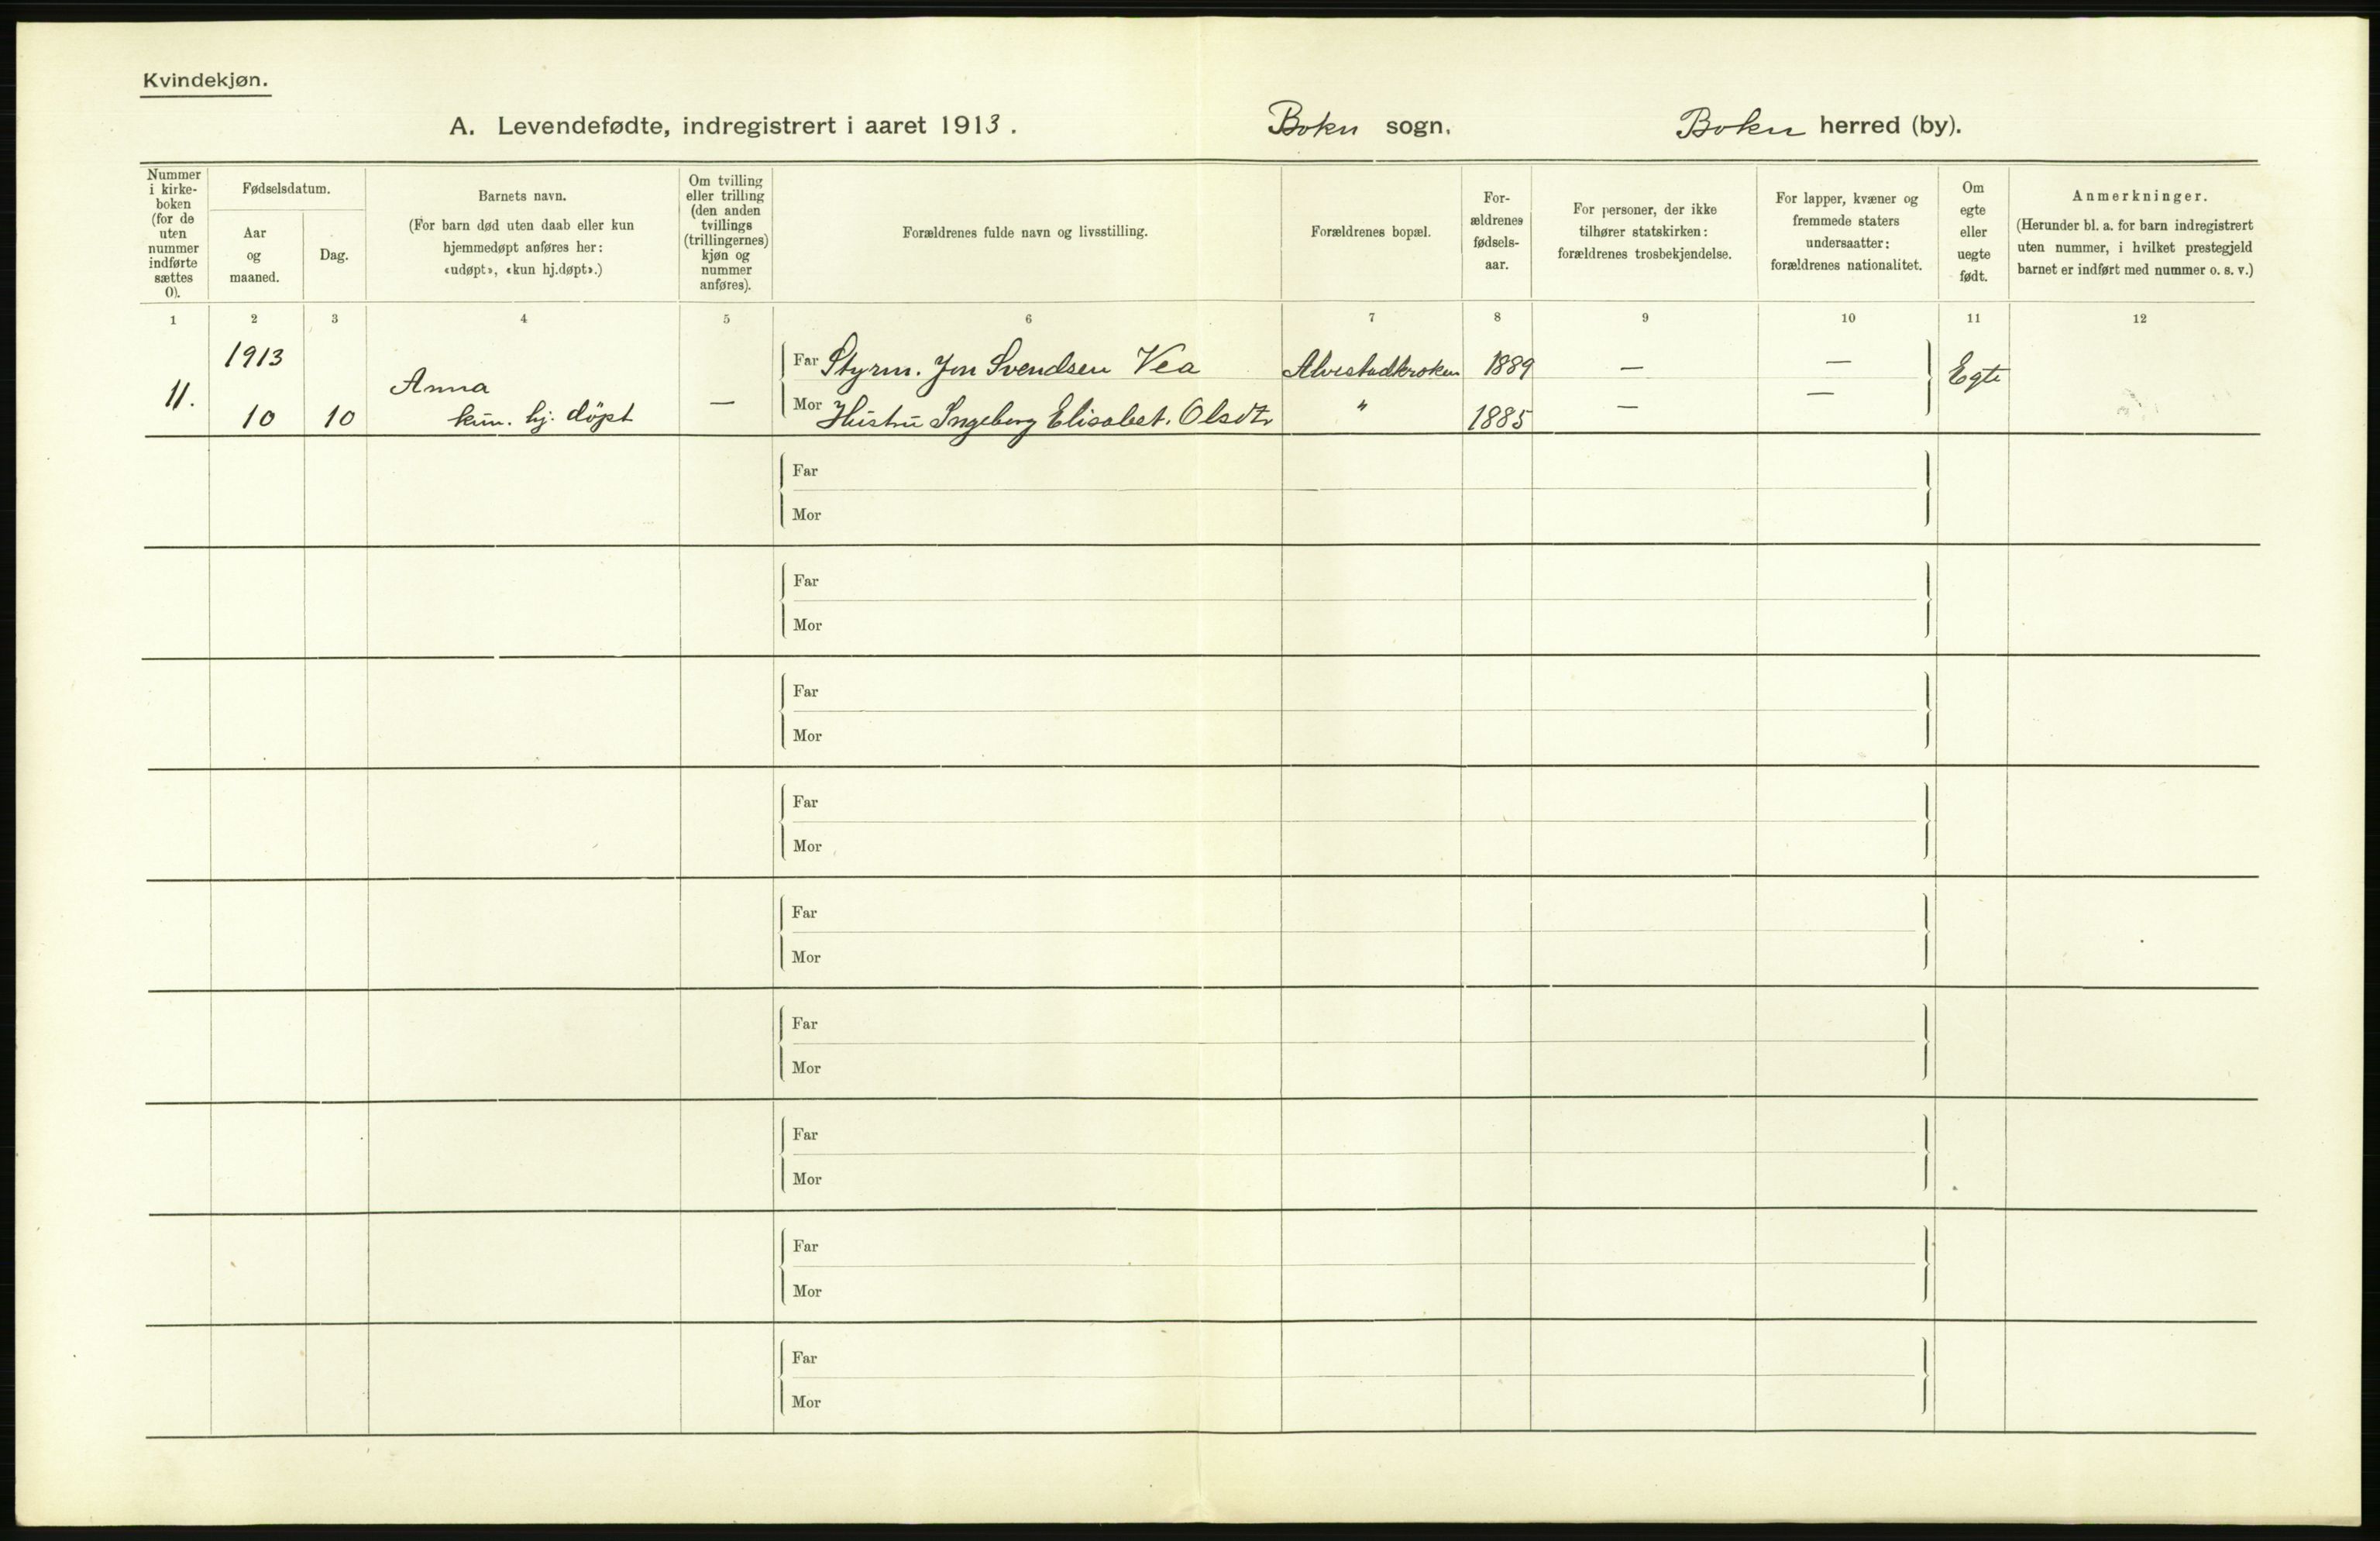 Kvindekjøn.
A. Levendefødte, indregistrert i aaret 1913. Bokn sogn, Bokn herred (by).
Nummer
i kirke-
boken
(for de
uten
nummer
indførte
sættes
0).
Fødselsdatum.
Aar
og
maaned.
Dag.
Barnets navn.
(For barn død uten daab eller kun
hjemmedøpt anføres her:
«udøpt», «kun hj.døpt».)
Om tvilling
eller trilling
(den anden
tvillings
(trillingernes)
kjøn og
nummer
anføres).
Forældrenes fulde navn og livsstilling.
Forældrenes bopæl.
For-
ældrenes
fødsels-
aar.
For personer, der ikke
tilhører statskirken:
forældrenes trosbekjendelse.
For lapper, kvæner og
fremmede staters
undersaatter:
forældrenes nationalitet.
Om
egte
eller
uegte
født.
Anmerkninger.
(Herunder bl. a. for barn indregistrert
uten nummer, i hvilket prestegjeld
barnet er indført med nummer o. s. v.)
1 2 3 4 5 6 7 8 9 10 11 12
1913
11.
10 10
Anna
kun. hj. döpt
—
Far Styrm. Jon Svendsen Vea Alvestadkroken 1889 — — Egte
Mor Hustru Ingeborg Elisabet. Olsdtr " 1885 — —
Far
Mor
Far
Mor
Far
Mor
Far
Mor
Far
Mor
Far
Mor
Far
Mor
Far
Mor
Far
Mor